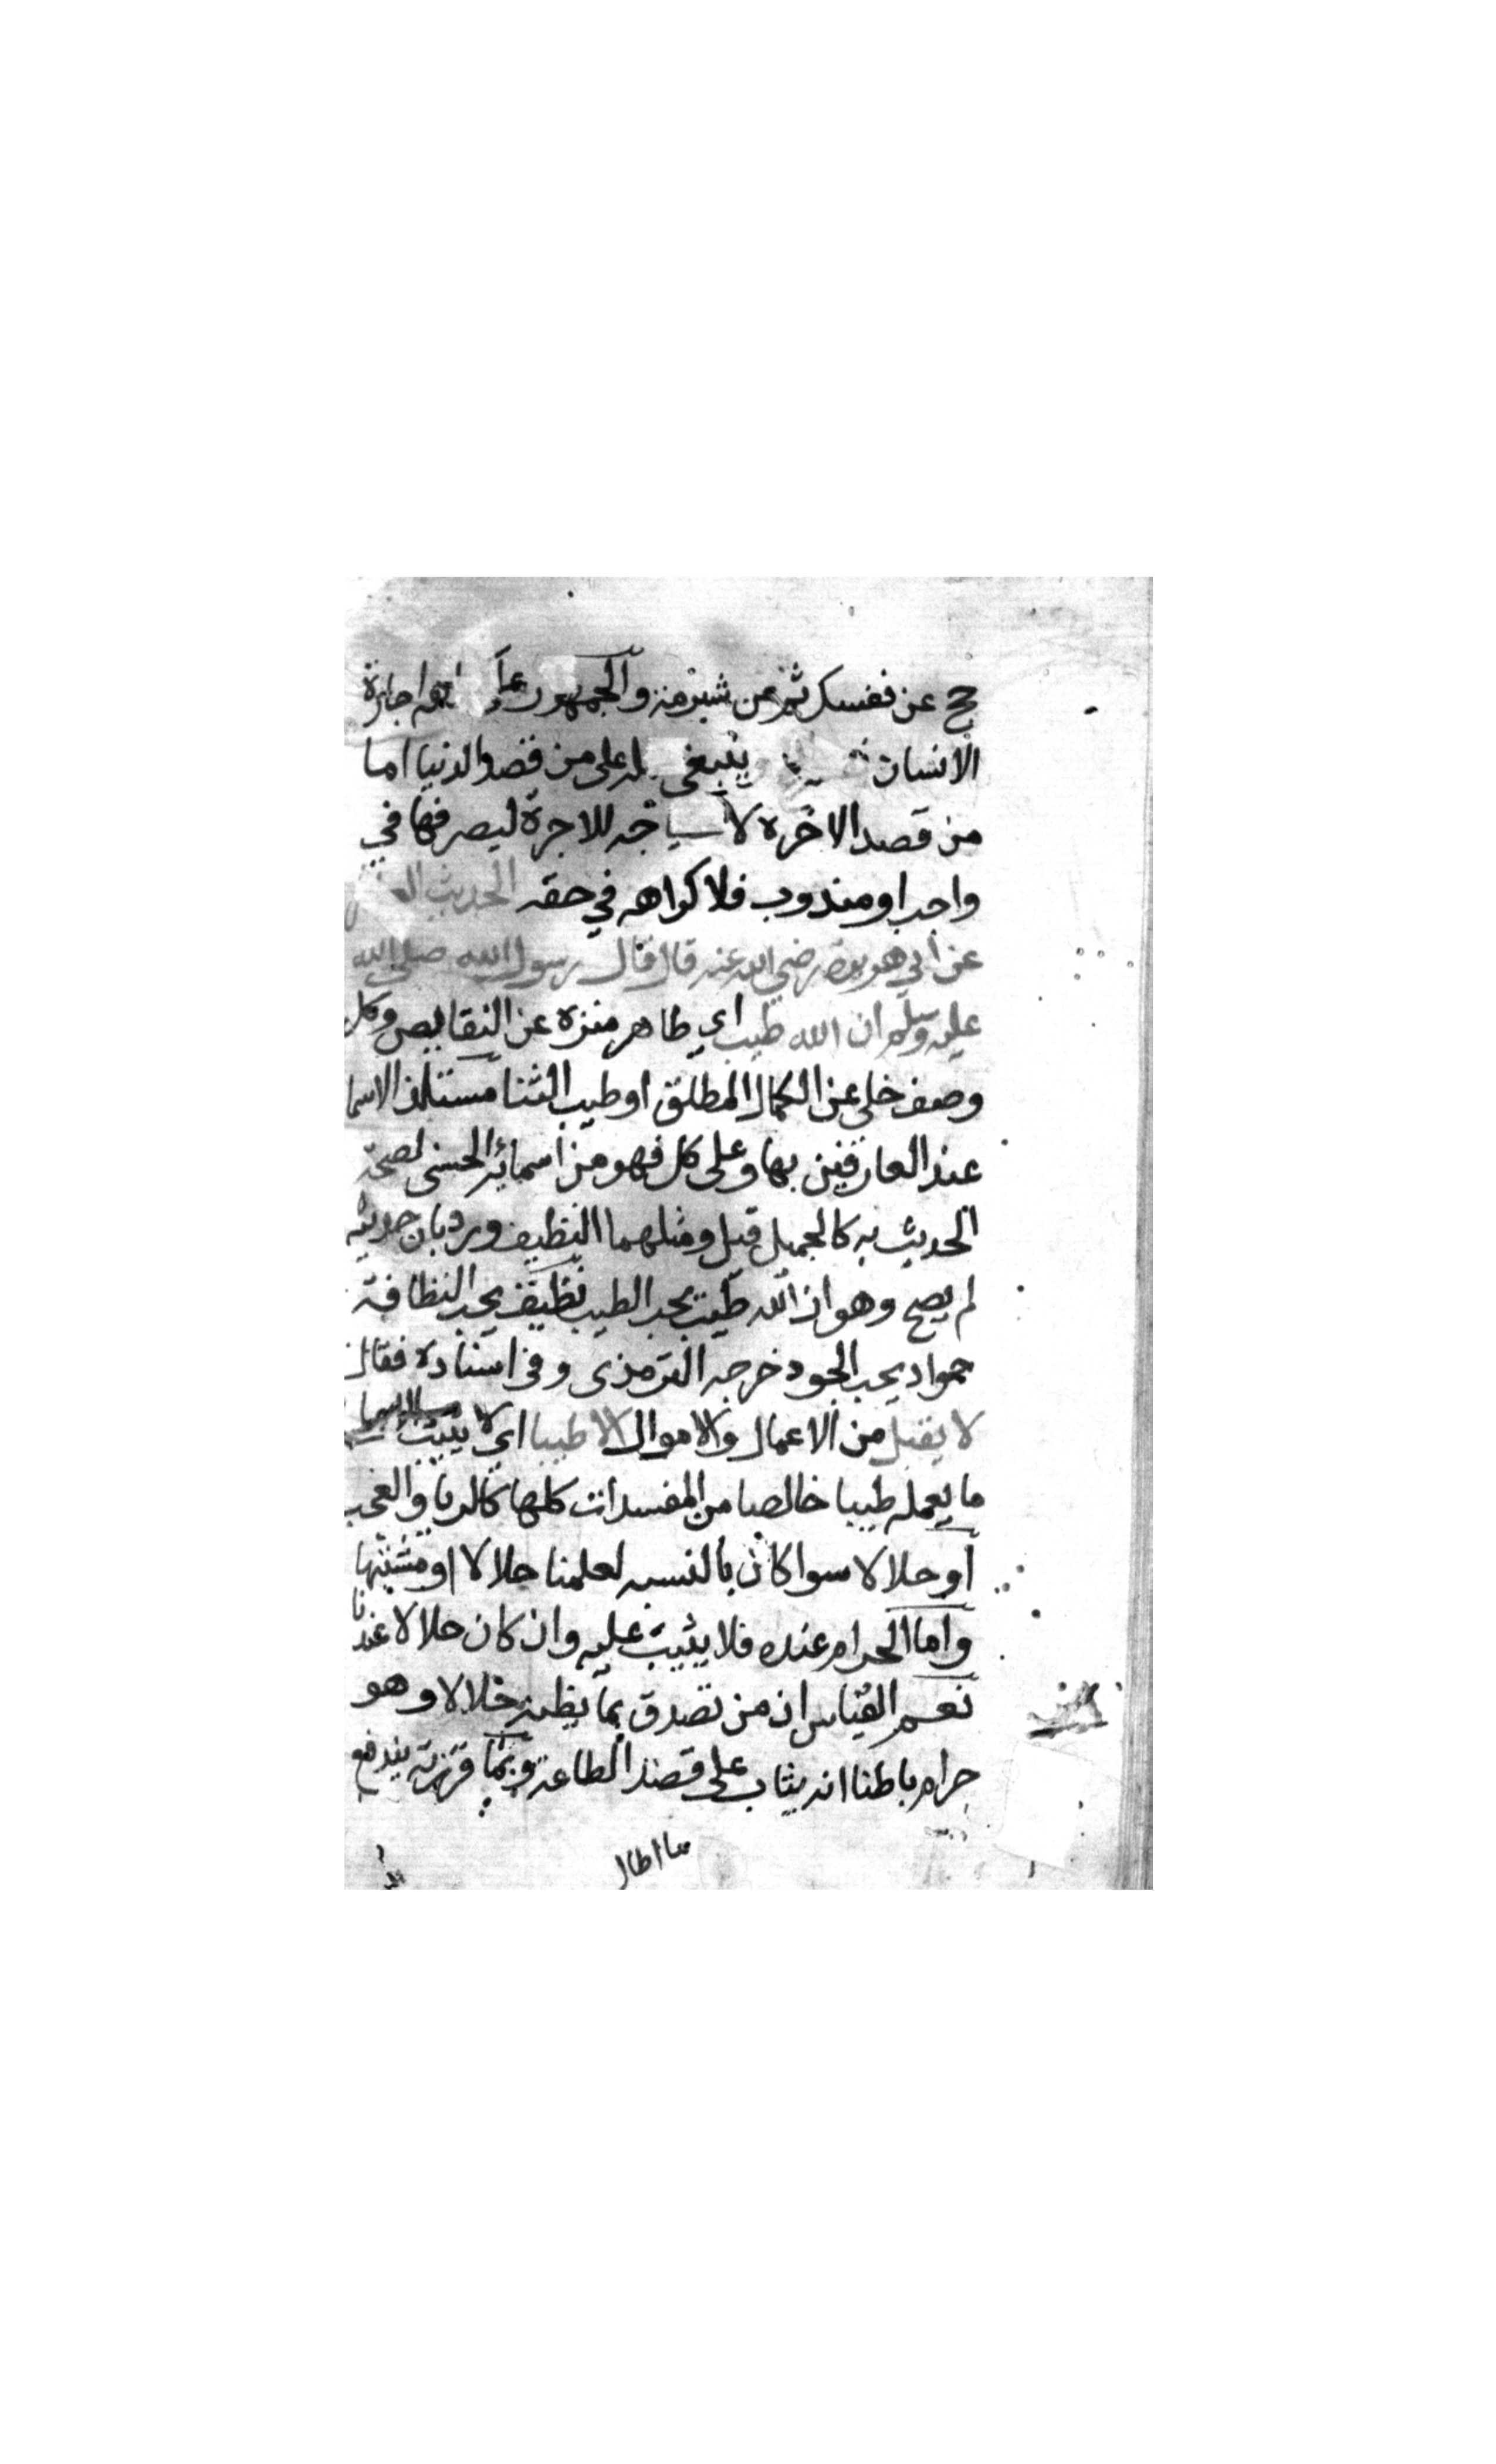 حج عن نفسك ثم عن شبرمة والجمهور على اجارة
الانسان ينبغى من قصد الدنيا اما
من قصد الاخرة لا للاجرة ليصرفها في
واجب او مندوب فلا كراهه في حقه الحديث
عن ابي هريرة رضي الله عنه قال قال رسول الله صلى الله
عليه وسلم ان الله طيب اي طاهر منزه عن النقايص وكل
وصف خلى عن الكمال المطلق او طيب الثنا مستلذ الاسما
عند العارفين بها وعلى كل فهو من اسمائه الحسنى لصحة
الحديث به كالجميل قيل ومثلهما النظيف ورد بان حديثه
لم يصح وهو ان الله طيب يحب الطيب نظيف يحب النظافة
جواد يحب الجود خرجه الترمذى وفى اسناده فقال
لا يقبل من الاعمال والاموال الا طيبا اي لا يثيب
ما يعمله طيبا خالصا من المفسدات كلها كالريا والعجب
او حلالا سوا كان بالنسبه لعلمنا حلالا او مشتبها
واما الحرام عنده فلا يثيب عليه وان كان حلالا عندنا
نعم القياس ان من تصدق بما يظنه حلالا وهو
حرام باطنا انه يثاب على قصد الطاعة وبما قررته يندفع
ما اطال